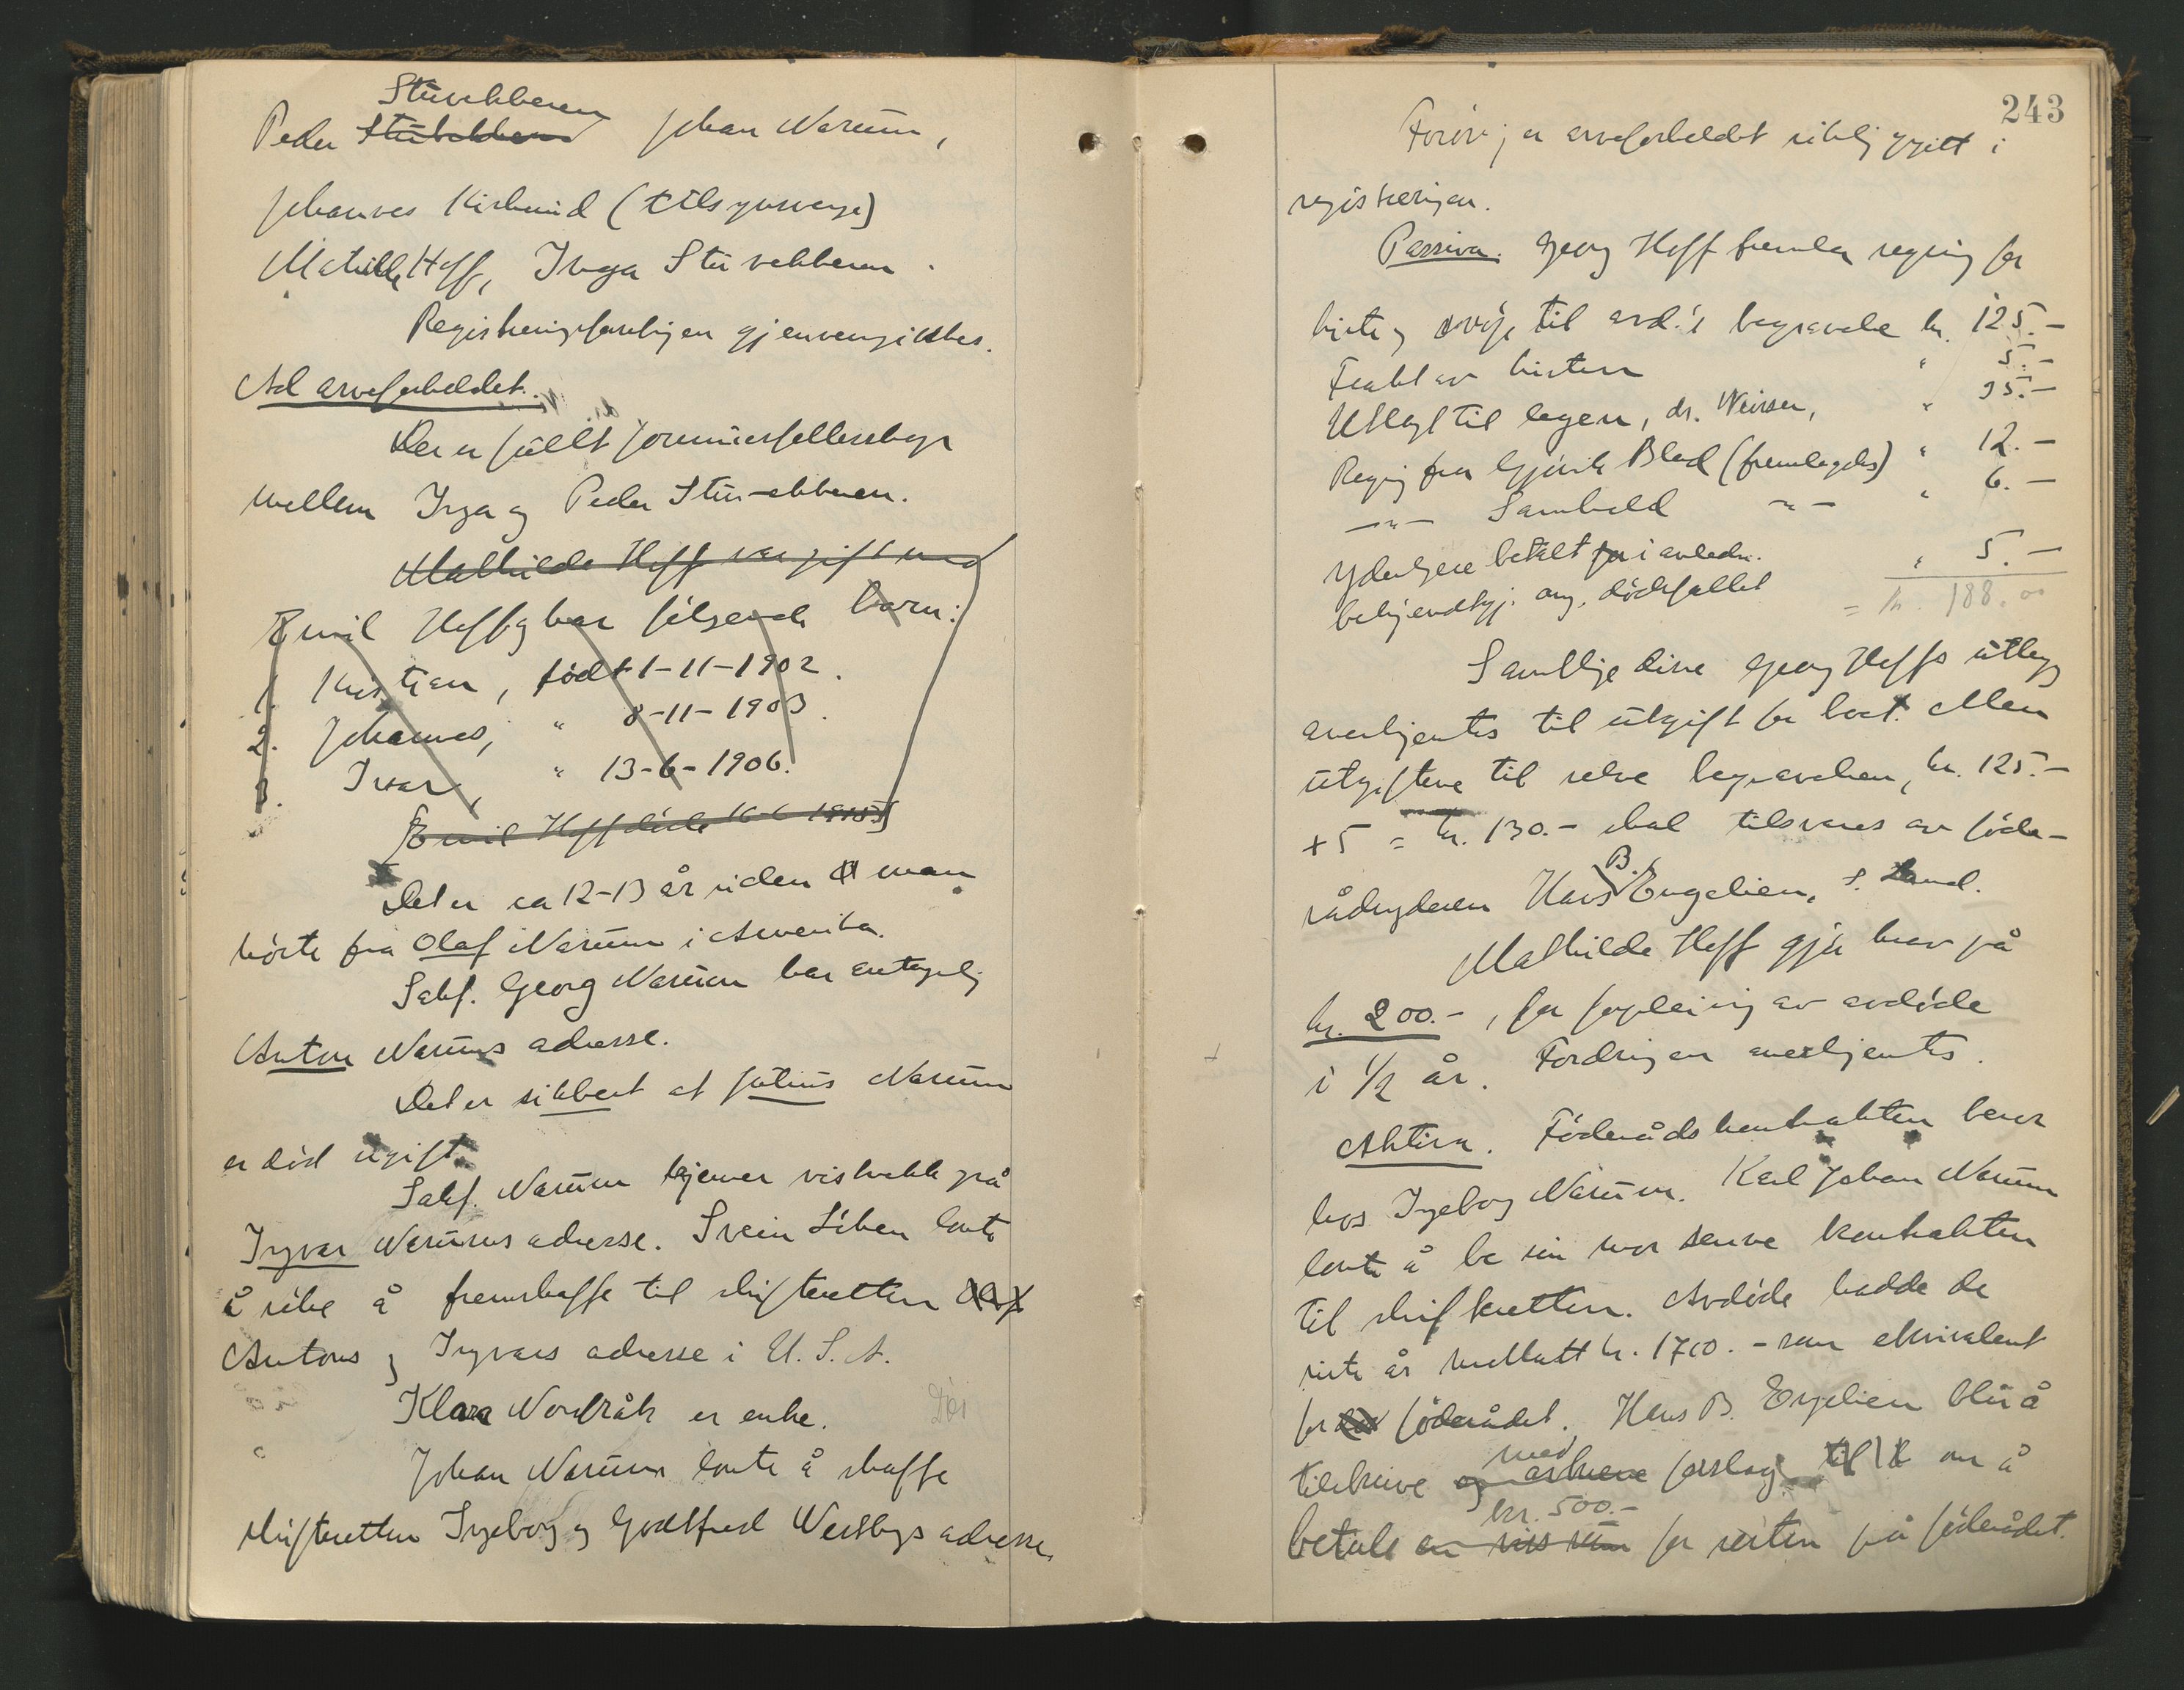 Stuvekkeren
Peder Stubekkeren Johan Narum,
Johannes Kirkerud (tilsynsverge)
Mathilde Hoff, Inga Stuvekkeren.
Registreringsforretningen gjennemgikkes.
Ad arveforholdet.
Der er fullt formuesfellesskap
mellem Inga og Peder Stuvekkeren.
Mathilde Hoff var gift med
Emil Hoff og har følgende barn:
1. Kristian, født 1-11-1902.
2. Johannes, " 8-11-1903.
3. Ivar, " 13-6-1906.
Emil Hoff døde 16-6 1915
Det er ca 12-13 år siden man
hørte fra Olaf Narum i Amerika.
Sakf. Georg Narum har antagelig
Anton Narums adresse.
Det er sikkert at Julius Narum
er død ugift.
Sakf. Narum kjenner visstnokk på
Ingvar Narums adresse. Svein Liken lovte
å søke å fremskaffe til skifteretten
Antons og Ingvars adresse i U.S.A.
Klara Nordråk er enke.
Johan Narum lovte å skaffe
skifteretten Ingeborg og Godtfred Westbys adresse.
243
Forøvrig er arveforholdet riktig opgitt i
registreringen.
Passiva. Georg Hoff fremla regning for
kiste og svøp til avd.'s begravelse kr. 125.-
Frakt av kisten " 5.-
Utlagt til legen, dr. Neisen, " 35.-
Regning fra Gjøvik Blad (fremlagdes) " 12.-
-"- Samhold -"- " 6.-
Yderligere betalt for i anledn.
bekjendtgj. ang. dødsfallet " 5.-
= kr 188.00
Samtlige disse Georg Hoffs utlegg
anerkjentes til utgift for boet. Men
utgiftene til selve begravelsen, kr. 125.-
+5 = kr. 130.- skal tilsvares av føde-
rådsyderen Hans B. Engelien, S. Land.
Mathilde Hoff gjør krav på
kr. 200.-, for forpleining av avdøde
i 1/2 år. Fordringen anerkjentes.
Aktiva. Føderådskontrakten beror
hos Ingeborg Narum. Karl Johan Narum
lovte å be sin mor sende kontrakten
til skifteretten. Avdøde hadde de
siste år mottatt kr. 1700.- som ekvivalent
for føderådet. Hans B. Engelien blir å
tilskrive og avkreve med forslag til om å
betale en viss sum kr. 500.- for resten på føderådet.